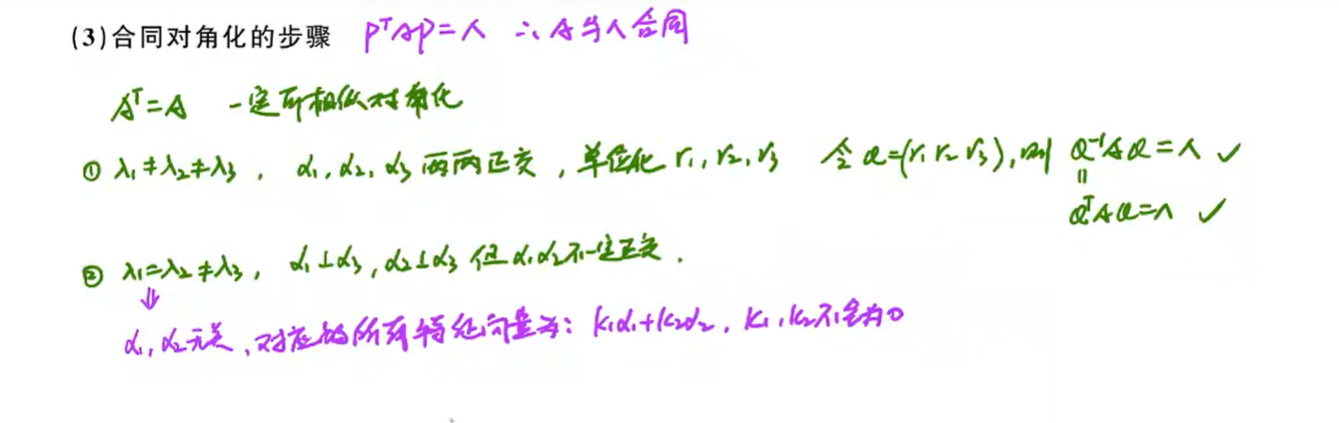 (3)合同对角化的步骤 PᵀAP=Λ ∴A与Λ合同
Aᵀ=A 一定可相似对角化
① λ₁≠λ₂≠λ₃, α₁,α₂,α₃两两正交,单位化r₁,r₂,r₃ 令Q=(r₁ r₂ r₃),则 Q⁻¹AQ=Λ ✓
=
QᵀAQ=Λ ✓
② λ₁=λ₂≠λ₃, α₁⊥α₃,α₂⊥α₃ 但α₁α₂不一定正交.
⇓
α₁,α₂无关,对应的所有特征向量为:k₁α₁+k₂α₂,k₁,k₂不全为0